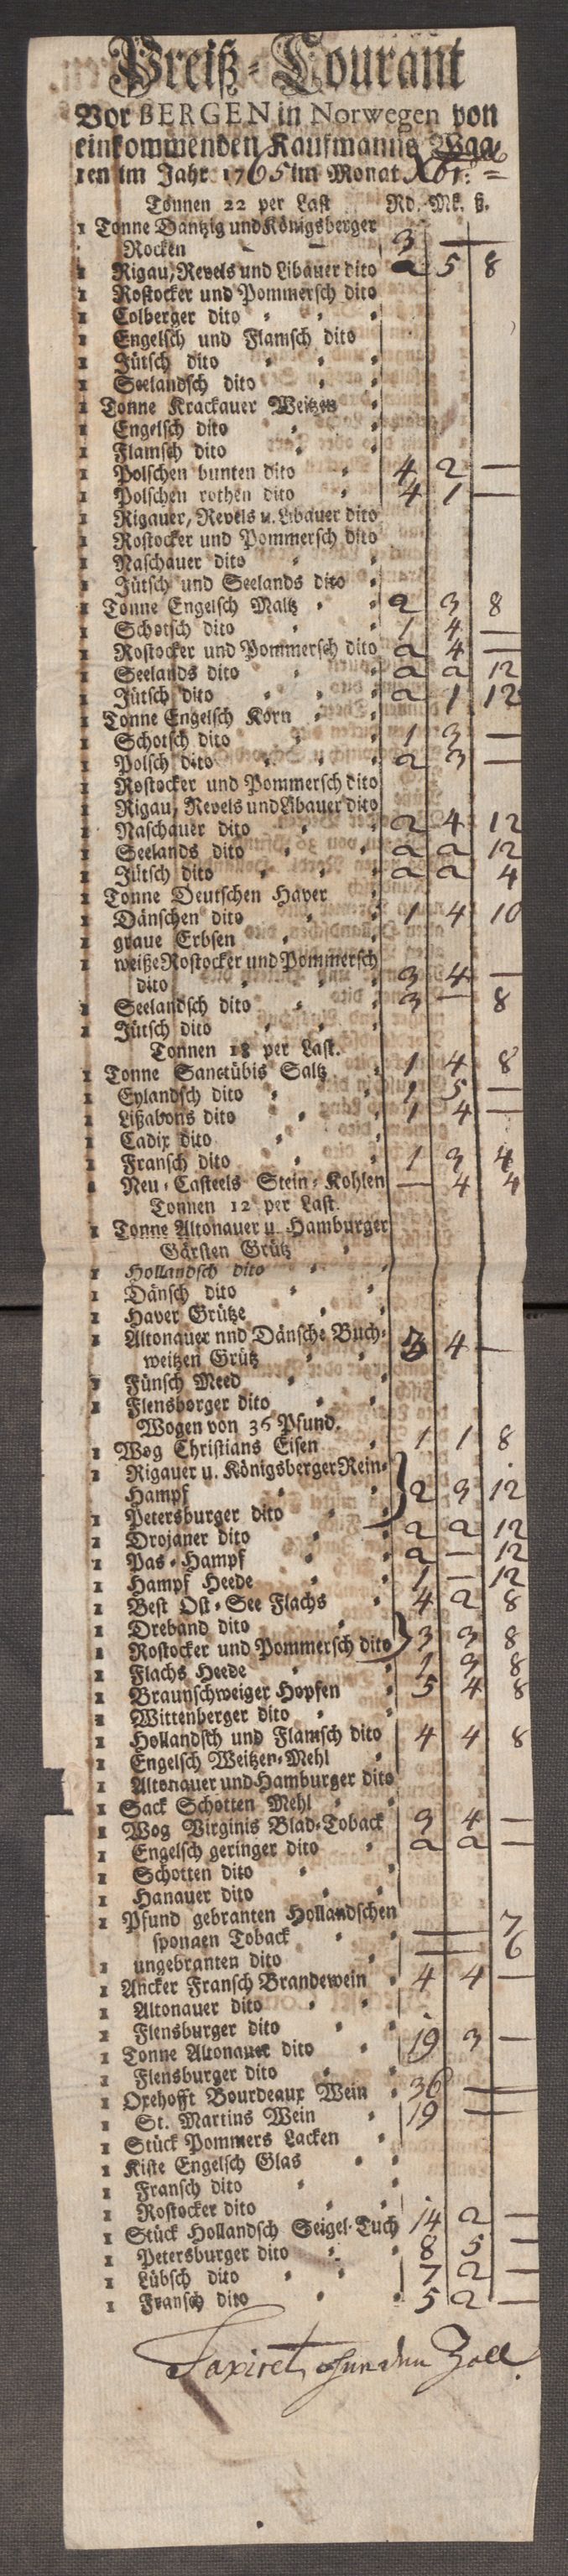 Preiß-Courant
Vor BERGEN in Norwegen von
einkommenden Kaufmanns Waa
ren im Jahr 1765 im Monat Xbr: =
Tonnen 22 per Last Rd. Mk. ß.
1 Tonne Dantzig und Königsberger
Rocken - - 3 —
1 Rigau, Revels und Libauer dito 2 5 8
1 Rostocker und Pommersch dito
1 Colberger dito
1 Engelsch und Flamsch dito
1 Jütsch dito
1 Seelandsch dito
1 Tonne Krackauer Weitzen
1 Engelsch dito
1 Flamsch dito
1 Polschen bunten dito 4 2 —
1 Polschen rothen dito 4 1 —
1 Rigauer, Revels u. Libauer dito
1 Rostocker und Pommersch dito
1 Naschauer dito
1 Jütsch und Seelands dito
1 Tonne Engelsch Maltz 2 3 8
1 Schotsch dito 1 4 —
1 Rostocker und Pommersch dito 2 4 —
1 Seelands dito 2 2 12
1 Jütsch dito 2 1 12
1 Tonne Engelsch Korn
1 Schotsch dito 1 3 —
1 Polsch dito 2 3 —
1 Rostocker und Pommersch dito
1 Rigau, Revels und Libauer dito
1 Naschauer dito 2 4 12
1 Seelands dito 2 2 12
1 Jütsch dito 2 2 4
1 Tonne Deutschen Haver
1 Dänschen dito 1 4 10
1 graue Erbsen
1 weiße Rostocker und Pommersch
dito 3 4 —
1 Seelandsch dito 3 — 8
1 Jütsch dito
Tonnen 18 per Last.
1 Tonne Sanctübis Saltz 1 4 8
1 Eylandsch dito 1 5 —
1 Lißabons dito 1 4 —
1 Cadix dito
1 Fransch dito 1 3 4
1 Neu-Casteels Stein-Kohlen — 4 4
Tonnen 12 per Last.
1 Tonne Altonauer u. Hamburger
Gärsten Grütz
1 Hollandsch dito
1 Dänsch dito
1 Haver Grütze
1 Altonauer nnd Dänsche Buch-
weitzen Grütz 3 4 —
1 Fünsch Meed
1 Flensborger dito
Wogen von 36 Pfund.
1 Wog Christians Eisen 1 1 8
1 Rigauer u. Königsberger Rein-
Hampf 2 3 12
1 Petersburger dito
1 Drojaner dito 2 2 12
1 Pas-Hampf 2 — 12
1 Hampf Heede 1 — 12
1 Best Ost-See Flachs 4 2 8
1 Dreband dito 3 3 8
1 Rostocker und Pommersch dito
1 Flachs Heede 1 3 8
1 Braunschweiger Hopfen 5 4 8
1 Wittenberger dito
1 Hollandsch und Flamsch dito 4 4 8
1 Engelsch Weitzen-Mehl
1 Altonauer und Hamburger dito
1 Sack Schotten Mehl
1 Wog Virginis Blad-Toback 3 4 —
1 Engelsch geringer dito 2 2 —
1 Schotten dito
1 Hanauer dito
1 Pfund gebranten Hollandschen
sponaen Toback — — 7
1 ungebranten dito — — 6
1 Ancker Fransch Brandewein 4 4 —
1 Altonauer dito
1 Flensburger dito
1 Tonne Altonauer dito 19 3 —
1 Flensburger dito
1 Oxehofft Bourdeaux Wein 36 —
1 St. Martins Wein 19 —
1 Stück Pommers Lacken
1 Kiste Engelsch Glas
1 Fransch dito
1 Rostocker dito
1 Stück Hollandsch Seigel-Tuch 14 2 —
1 Petersburger dito 8 5 —
1 Lübsch dito 7 2 —
1 Fransch dito 5 2 —
Taxiret Zoll.